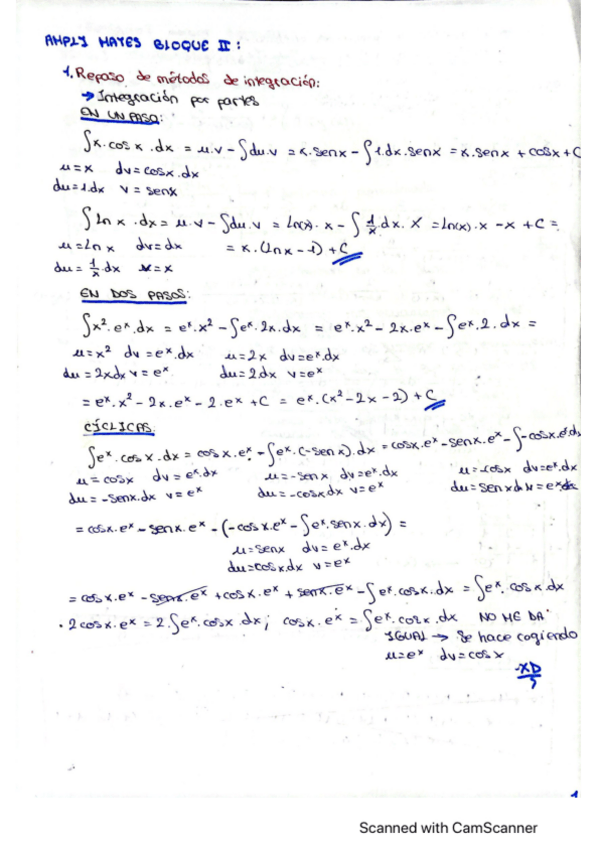 AMPLI MATES BLOQUE II:
1. Repaso de métodos de integración:
→ Integración por partes
EN UN PASO:
∫x·cos x·dx = u·v - ∫du·v = x·senx - ∫1·dx·senx = x·senx + cosx + C
u=x dv=cosx·dx
du=1·dx v=senx
∫ln x·dx = u·v - ∫du·v = ln(x)·x - ∫1/x·dx·x = ln(x)·x - x + C =
u=ln x dv=dx = x·(lnx - 1) + C
du=1/x dx v=x
EN DOS PASOS:
∫x²·eˣ·dx = eˣ·x² - ∫eˣ·2x·dx = eˣ·x² - 2x·eˣ - ∫eˣ·2·dx =
u=x² dv=eˣ·dx u=2x dv=eˣ·dx
du=2xdx v=eˣ du=2·dx v=eˣ
= eˣ·x² - 2x·eˣ - 2·eˣ + C = eˣ·(x² - 2x - 2) + C
CÍCLICAS:
∫eˣ·cos x·dx = cos x·eˣ - ∫eˣ·(-sen x)·dx = cosx·eˣ - senx·eˣ - ∫-cosx·eˣ·dx
u=cosx dv=eˣ·dx u=-senx dv=eˣ·dx u=-cosx dv=eˣ·dx
du=-senx·dx v=eˣ du=-cosx dx v=eˣ du=senxdx v=eˣ
= cosx·eˣ - senx·eˣ - (-cosx·eˣ - ∫eˣ·senx·dx) =
u=senx dv=eˣ·dx
du=cosx·dx v=eˣ
= cosx·eˣ - senx·eˣ + cosx·eˣ + senx·eˣ - ∫eˣ·cosx·dx = ∫eˣ·cosx dx
· 2cosx·eˣ = 2·∫eˣ·cosx dx; cosx·eˣ = ∫eˣ·cosx·dx NO ME DA
IGUAL → Se hace cogiendo
u=eˣ dv=cosx
XD
1
Scanned with CamScanner